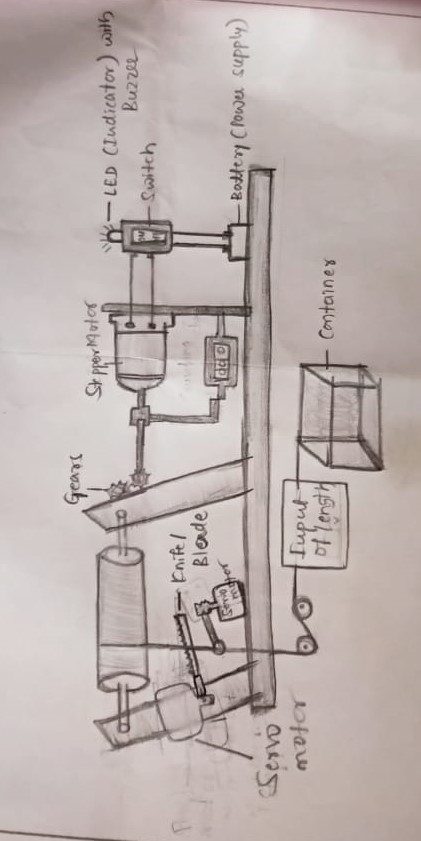 Gears
Stepper Motor
LED (Indicator) with
Buzzer
Switch
Knife/
Blade
Servo
motor
Servo
motor
Battery (Power supply)
Input
of length
Container